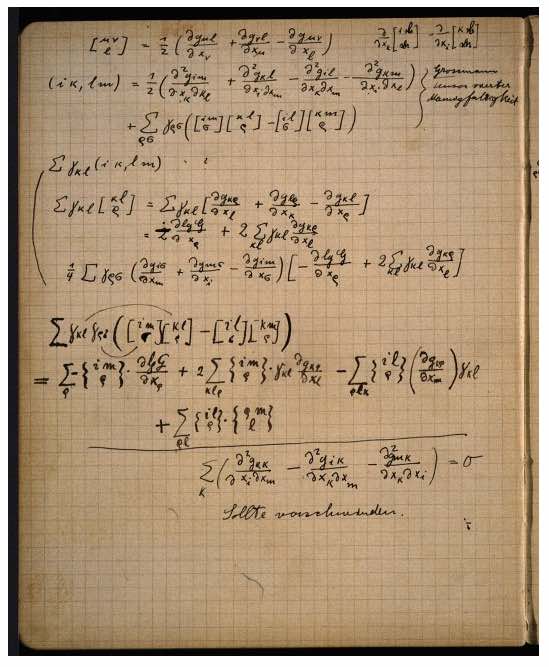 [μν l] = 1/2 (∂gμl/∂xν + ∂gνl/∂xμ − ∂gμν/∂xl) ∂/∂xl [iκ] − ∂/∂xi [κ]
(iκ, lm) = 1/2 (∂²gim/∂xκ∂xl + ∂²gκl/∂xi∂xm − ∂²gil/∂xκ∂xm − ∂²gκm/∂xi∂xl) } Grossmann
Mannigfaltigkeit
+ Σρσ γρσ ([im σ][κl ρ] − [il σ][κm ρ])
Σ γκl (iκ, lm)
Σ γκl [κl ρ] = Σ γκl [∂gκρ/∂xl + ∂glρ/∂xκ − ∂gκl/∂xρ]
= − ∂lgG/∂xρ + 2 Σκl γκl ∂gκρ/∂xl
1/4 Σ γρσ (∂giσ/∂xm + ∂gmσ/∂xi − ∂gim/∂xσ) [− ∂lgG/∂xρ + 2 Σκl γκl ∂gκρ/∂xl]
Σ γκl γρσ ([im σ][κl ρ] − [il σ][κm ρ])
= Σρ −{im ρ} · ∂lgG/∂xρ + 2 Σκlρ {im ρ} · γκl ∂gκρ/∂xl − Σρlκ {il ρ} (∂gκρ/∂xm) γκl
+ Σρl {il ρ} · {ρm l}
Σκ (∂²gκκ/∂xi∂xm − ∂²giκ/∂xκ∂xm − ∂²gmκ/∂xκ∂xi) = 0
Sollte verschwinden.